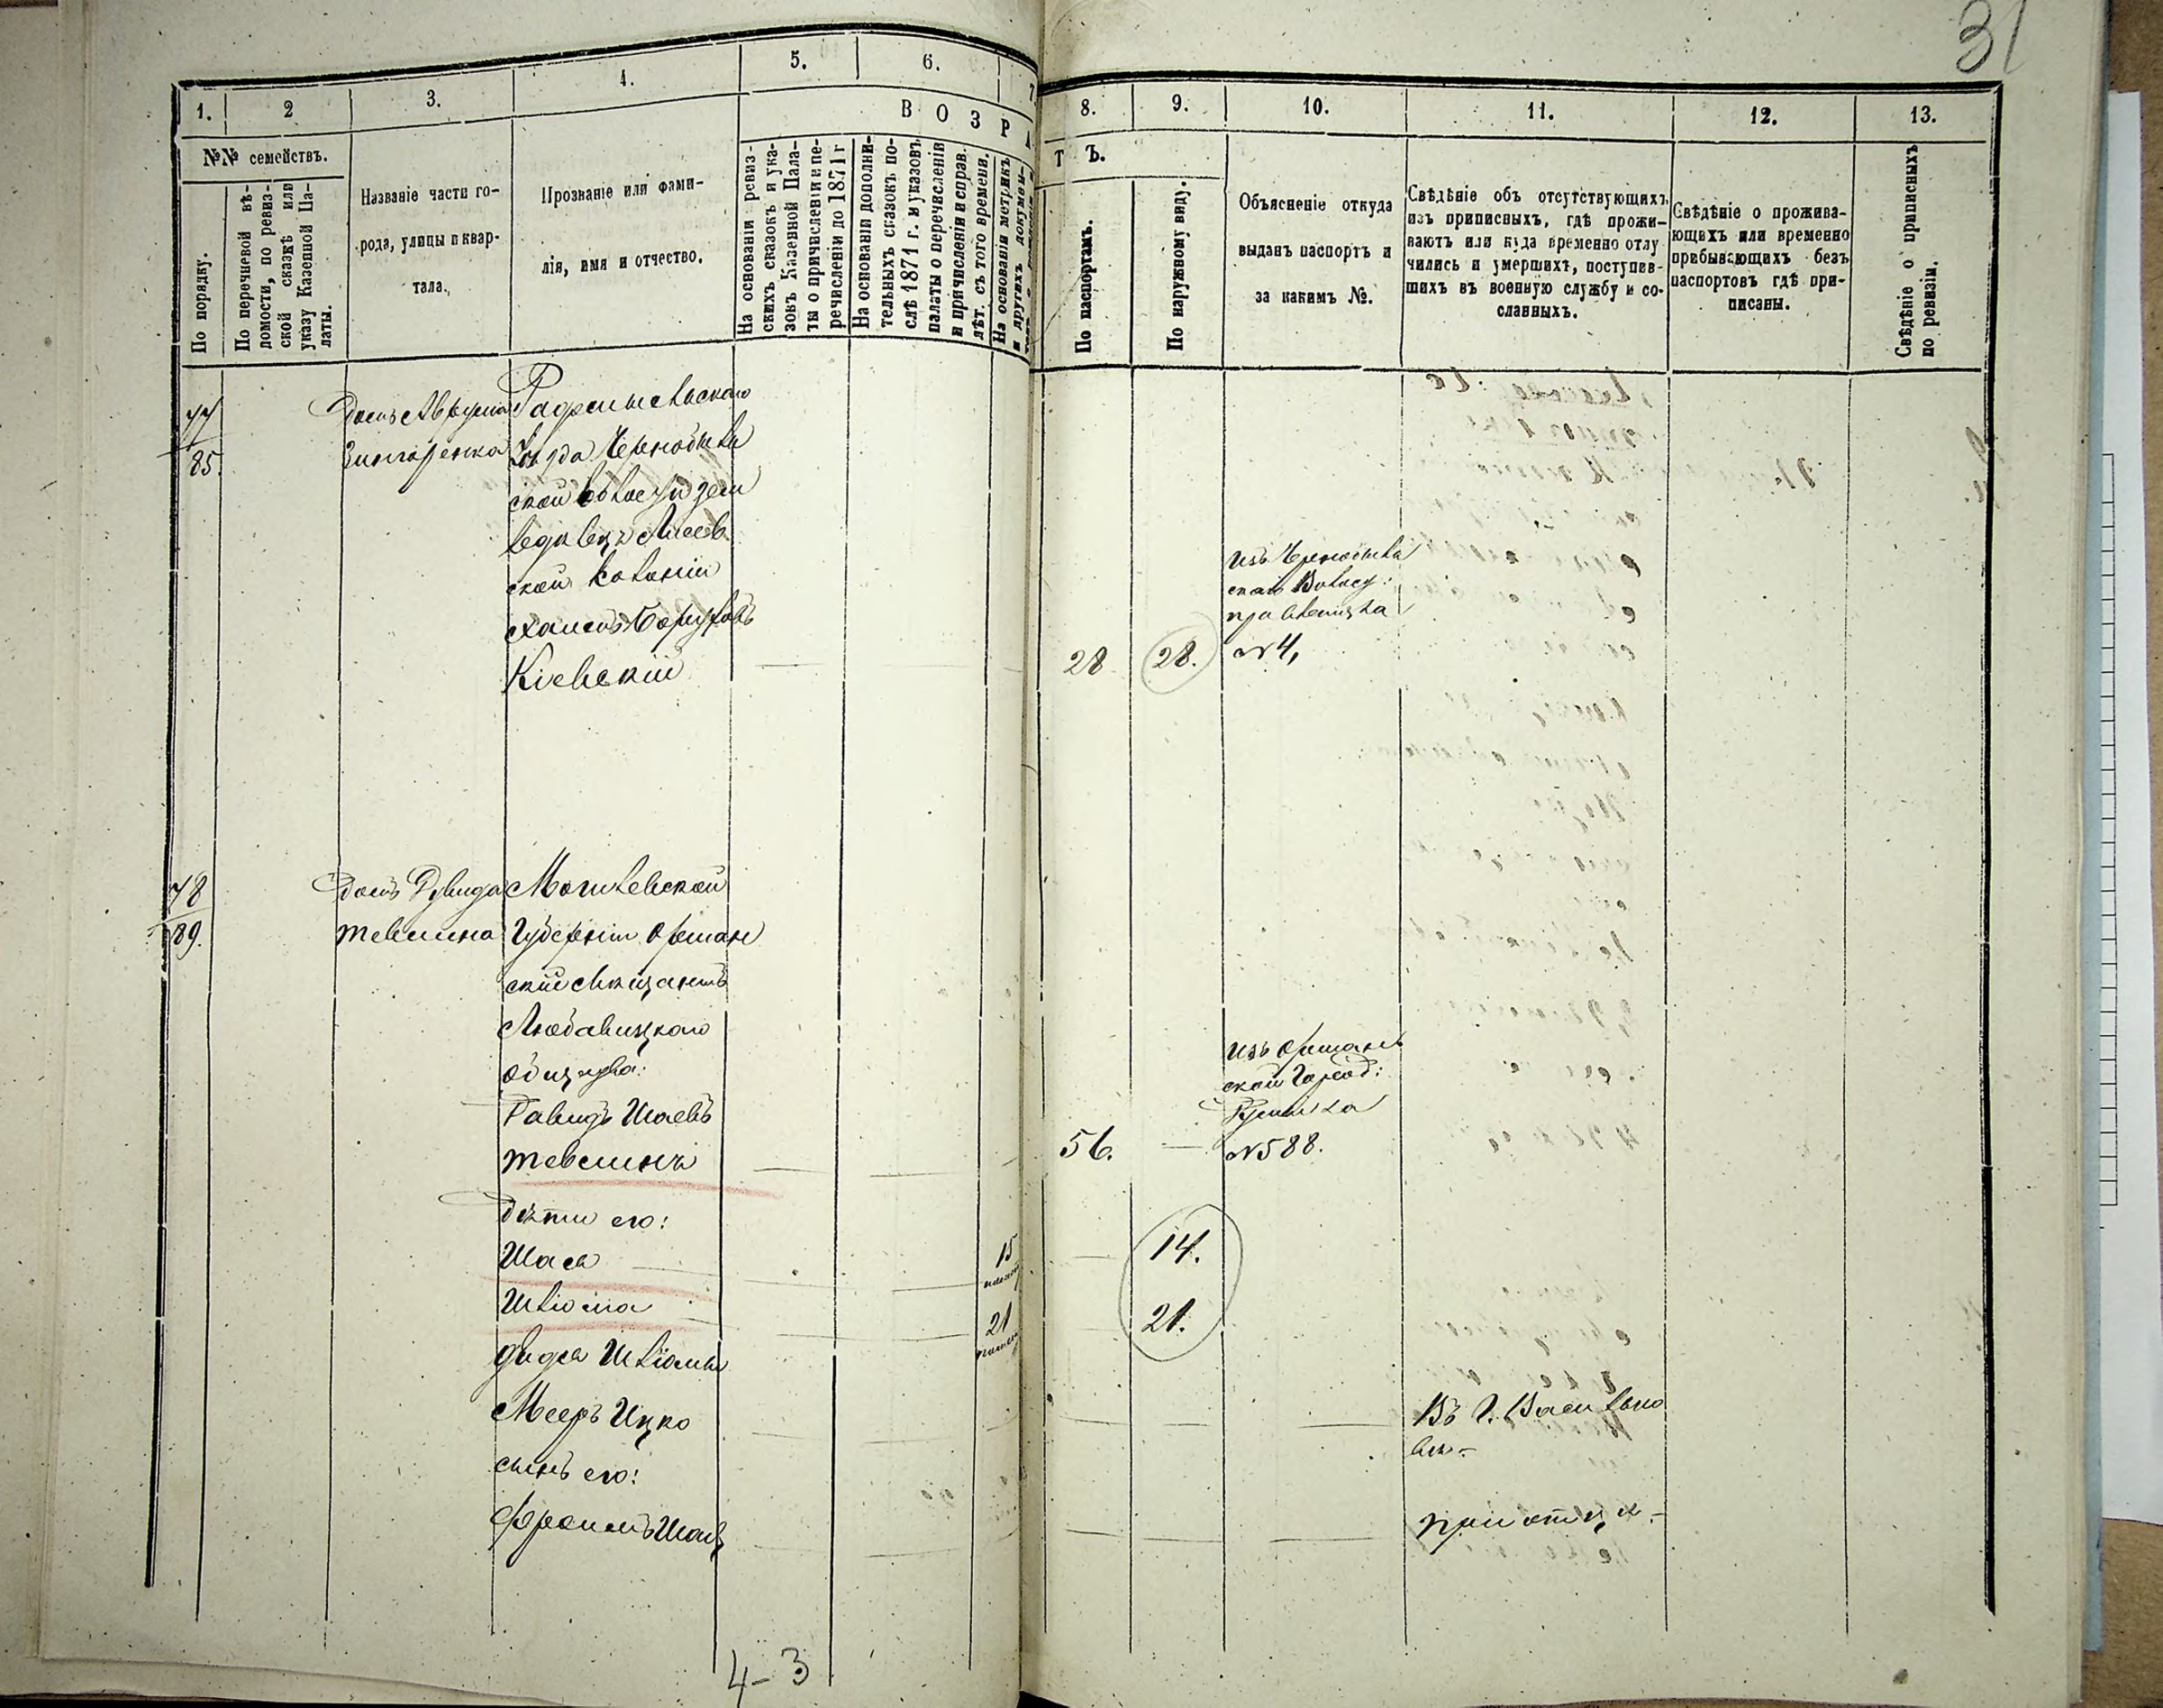 31
1.
2
3.
4.
5.
6.
7
В О З Р А
№№ семействъ.
По порядку.
По перечневой вѣ-
домости, по ревиз-
ской сказкѣ или
указу Казенной Па-
латы.
Названіе части го-
рода, улицы и квар-
тала.
Прозваніе или фами-
лія, имя и отчество.
На основаніи ревиз-
скихъ сказокъ и ука-
зовъ Казенной Пала-
ты о причисленіи и пе-
речисленіи до 1871 г
На основаніи дополни-
тельныхъ сказокъ по-
слѣ 1871 г. и указовъ
палаты о перечисленіи
и причисленіи и справ.
лѣт. съ того времени.
На основаніи метрикъ
и другихъ докумен-
8.
9.
10.
11.
12.
13.
Т Ъ.
По паспортамъ.
По наружному виду.
Объясненіе откуда
выданъ паспортъ и
за какимъ №.
Свѣдѣніе объ отсутствующихъ
изъ приписныхъ, гдѣ прожи-
ваютъ или куда временно отлу
чились и умершихъ, поступив-
шихъ въ военную службу и со-
сланныхъ.
Свѣдѣніе о прожива-
ющихъ или временно
прибывающихъ безъ
паспортовъ гдѣ при-
писаны.
Свѣдѣніе о приписныхъ
по ревизіи.
77
85.
Домъ Аврума
Радомысльскаго
уѣзда Чернобыль
ской волости земле
ской колоніи
Хаимъ Боруховъ
Кіевскій
28
28.
изъ Чернобыль
скаго Волост:
правленія за
№ 4,
78
89.
домъ Давида
тевелина
Могилевской
Губерніи Оршан
скій мѣщанинъ
Любавицкаго
общества:
Давидъ Шаевъ
тевелинъ
56.
—
изъ Оршан
ской Город:
Думы за
№ 588.
дѣти его:
Шая
15
14.
Шліома
21
21.
дядя Шліомы
Мееръ Ицко
Въ г. Василько
вѣ.–
сынъ его:
при отцѣ.–
4–3